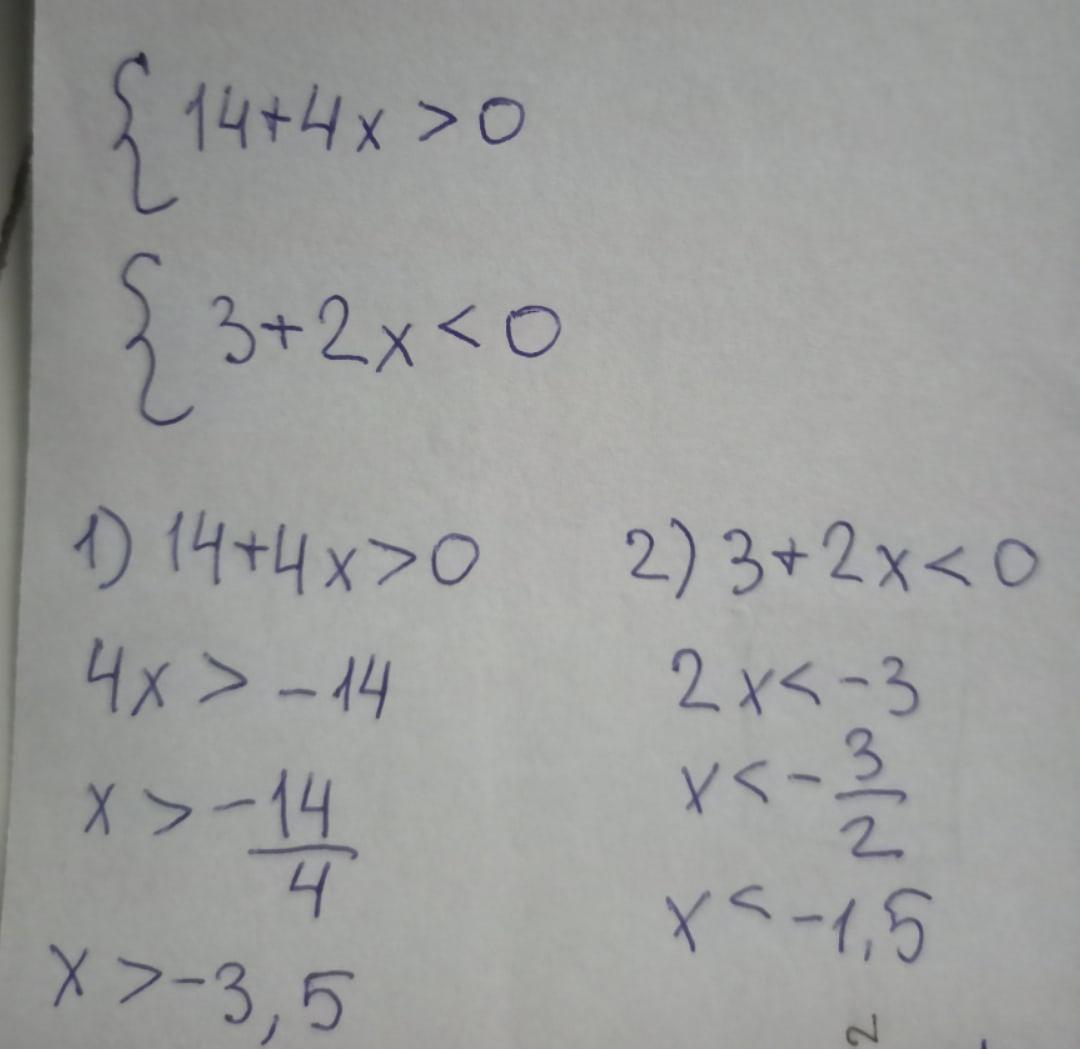 { 14+4x > 0
{ 3+2x < 0
1) 14+4x>0
4x > -14
x > -14/4
x > -3,5
2) 3+2x < 0
2x < -3
x < -3/2
x < -1,5
2